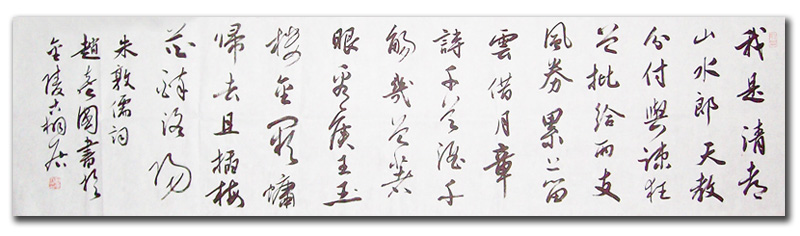 我是清都
山水郎天教
分付與疎狂
曾批給雨支
風券累上留
雲借月章
詩千首酒千
觴幾曾著
眼看侯王玉
樓金闕慵
歸去且插梅
花醉洛陽
朱敦儒詞
趙國書於
金陵桐居